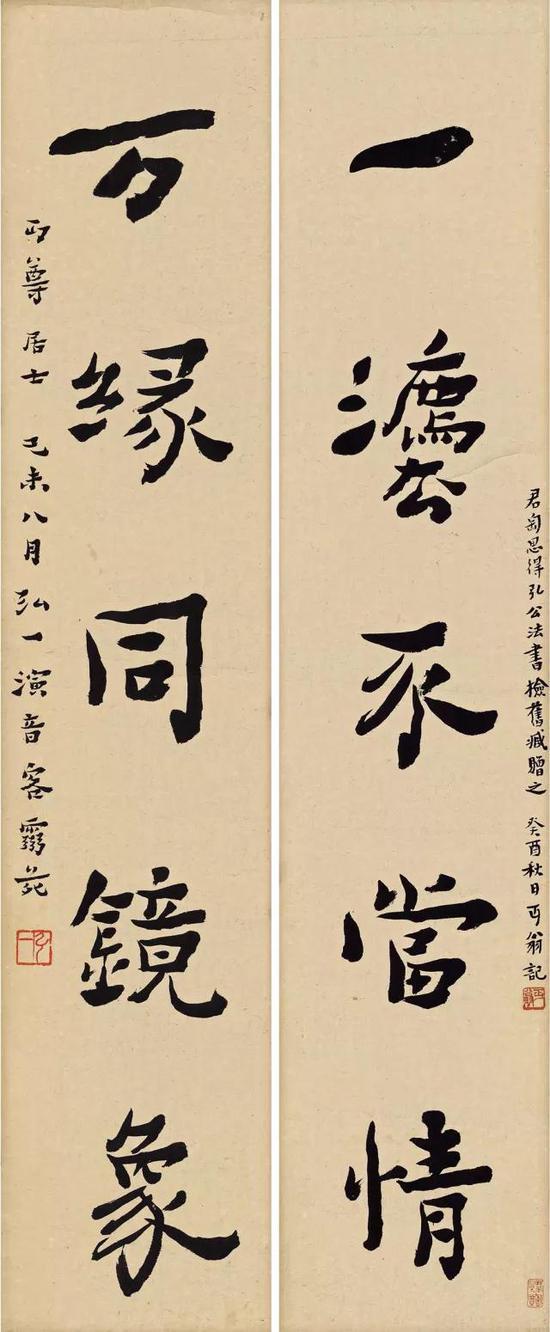 君匋思得弘公法書檢舊臧贈之 癸酉秋日丏翁記
一灋不當情
万緣同鏡象
丏尊居士 己未八月 弘一演音客靈苑
弘一